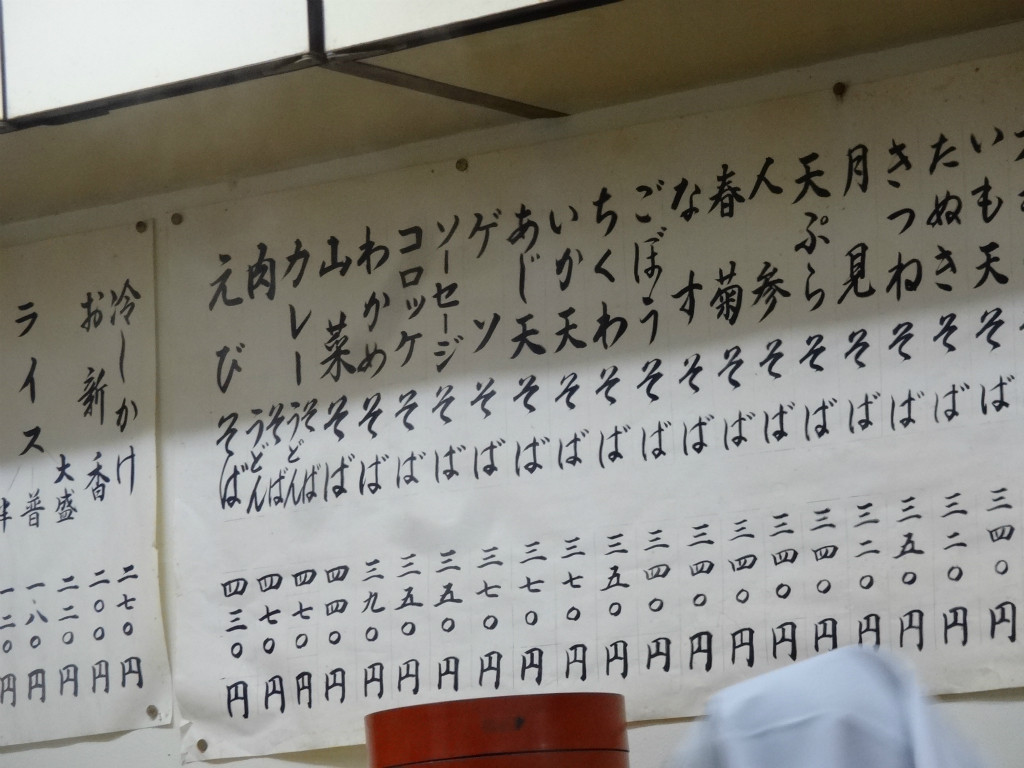 いも天そば 三四〇円
たぬきそば 三二〇円
きつねそば 三五〇円
月見そば 三二〇円
天ぷらそば 三四〇円
人参そば 三四〇円
春菊そば 三四〇円
なすそば 三四〇円
ごぼうそば 三四〇円
ちくわそば 三五〇円
いか天そば 三七〇円
あじ天そば 三七〇円
ゲソそば 三七〇円
ソーセージそば 三五〇円
コロッケそば 三五〇円
わかめそば 三九〇円
山菜そば 四四〇円
カレーそばうどん 四七〇円
肉そばうどん 四七〇円
えびそば 四三〇円
冷しかけ 二七〇円
お新香 二〇〇円
大盛 二二〇円
ライス 普 一八〇円
半 一二〇円